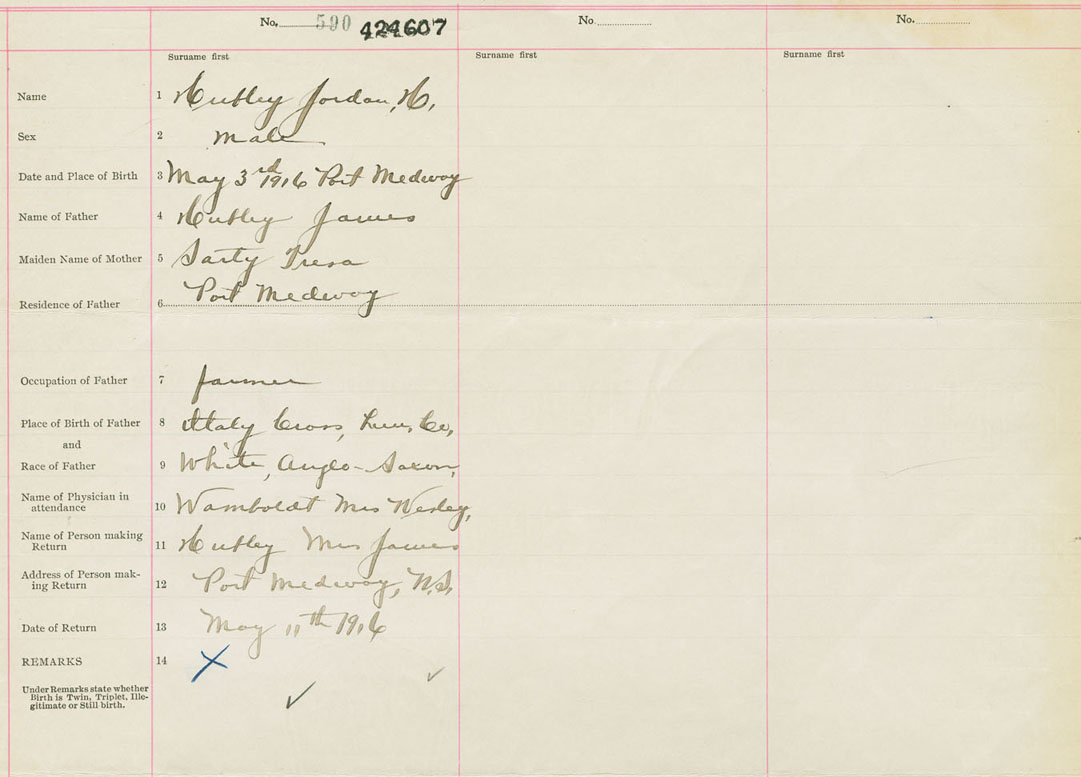 No. 590 424607 No. No.
Surname first Surname first Surname first
Name 1 Hubley Jordan, H,
Sex 2 male
Date and Place of Birth 3 May 3rd 1916 Port Medway
Name of Father 4 Hubley James
Maiden Name of Mother 5 Sarty Tresa
Residence of Father 6 Port Medway
Occupation of Father 7 farmer
Place of Birth of Father 8 Italy Cross, Lun, Co,
and
Race of Father 9 White, Anglo-Saxon,
Name of Physician in
attendance 10 Wamboldt Mrs Wesley,
Name of Person making
Return 11 Hubley Mrs James
Address of Person mak-
ing Return 12 Port Medway, N.S,
Date of Return 13 May 11th 1916
REMARKS 14 X
Under Remarks state whether
Birth is Twin, Triplet, Ille-
gitimate or Still birth.